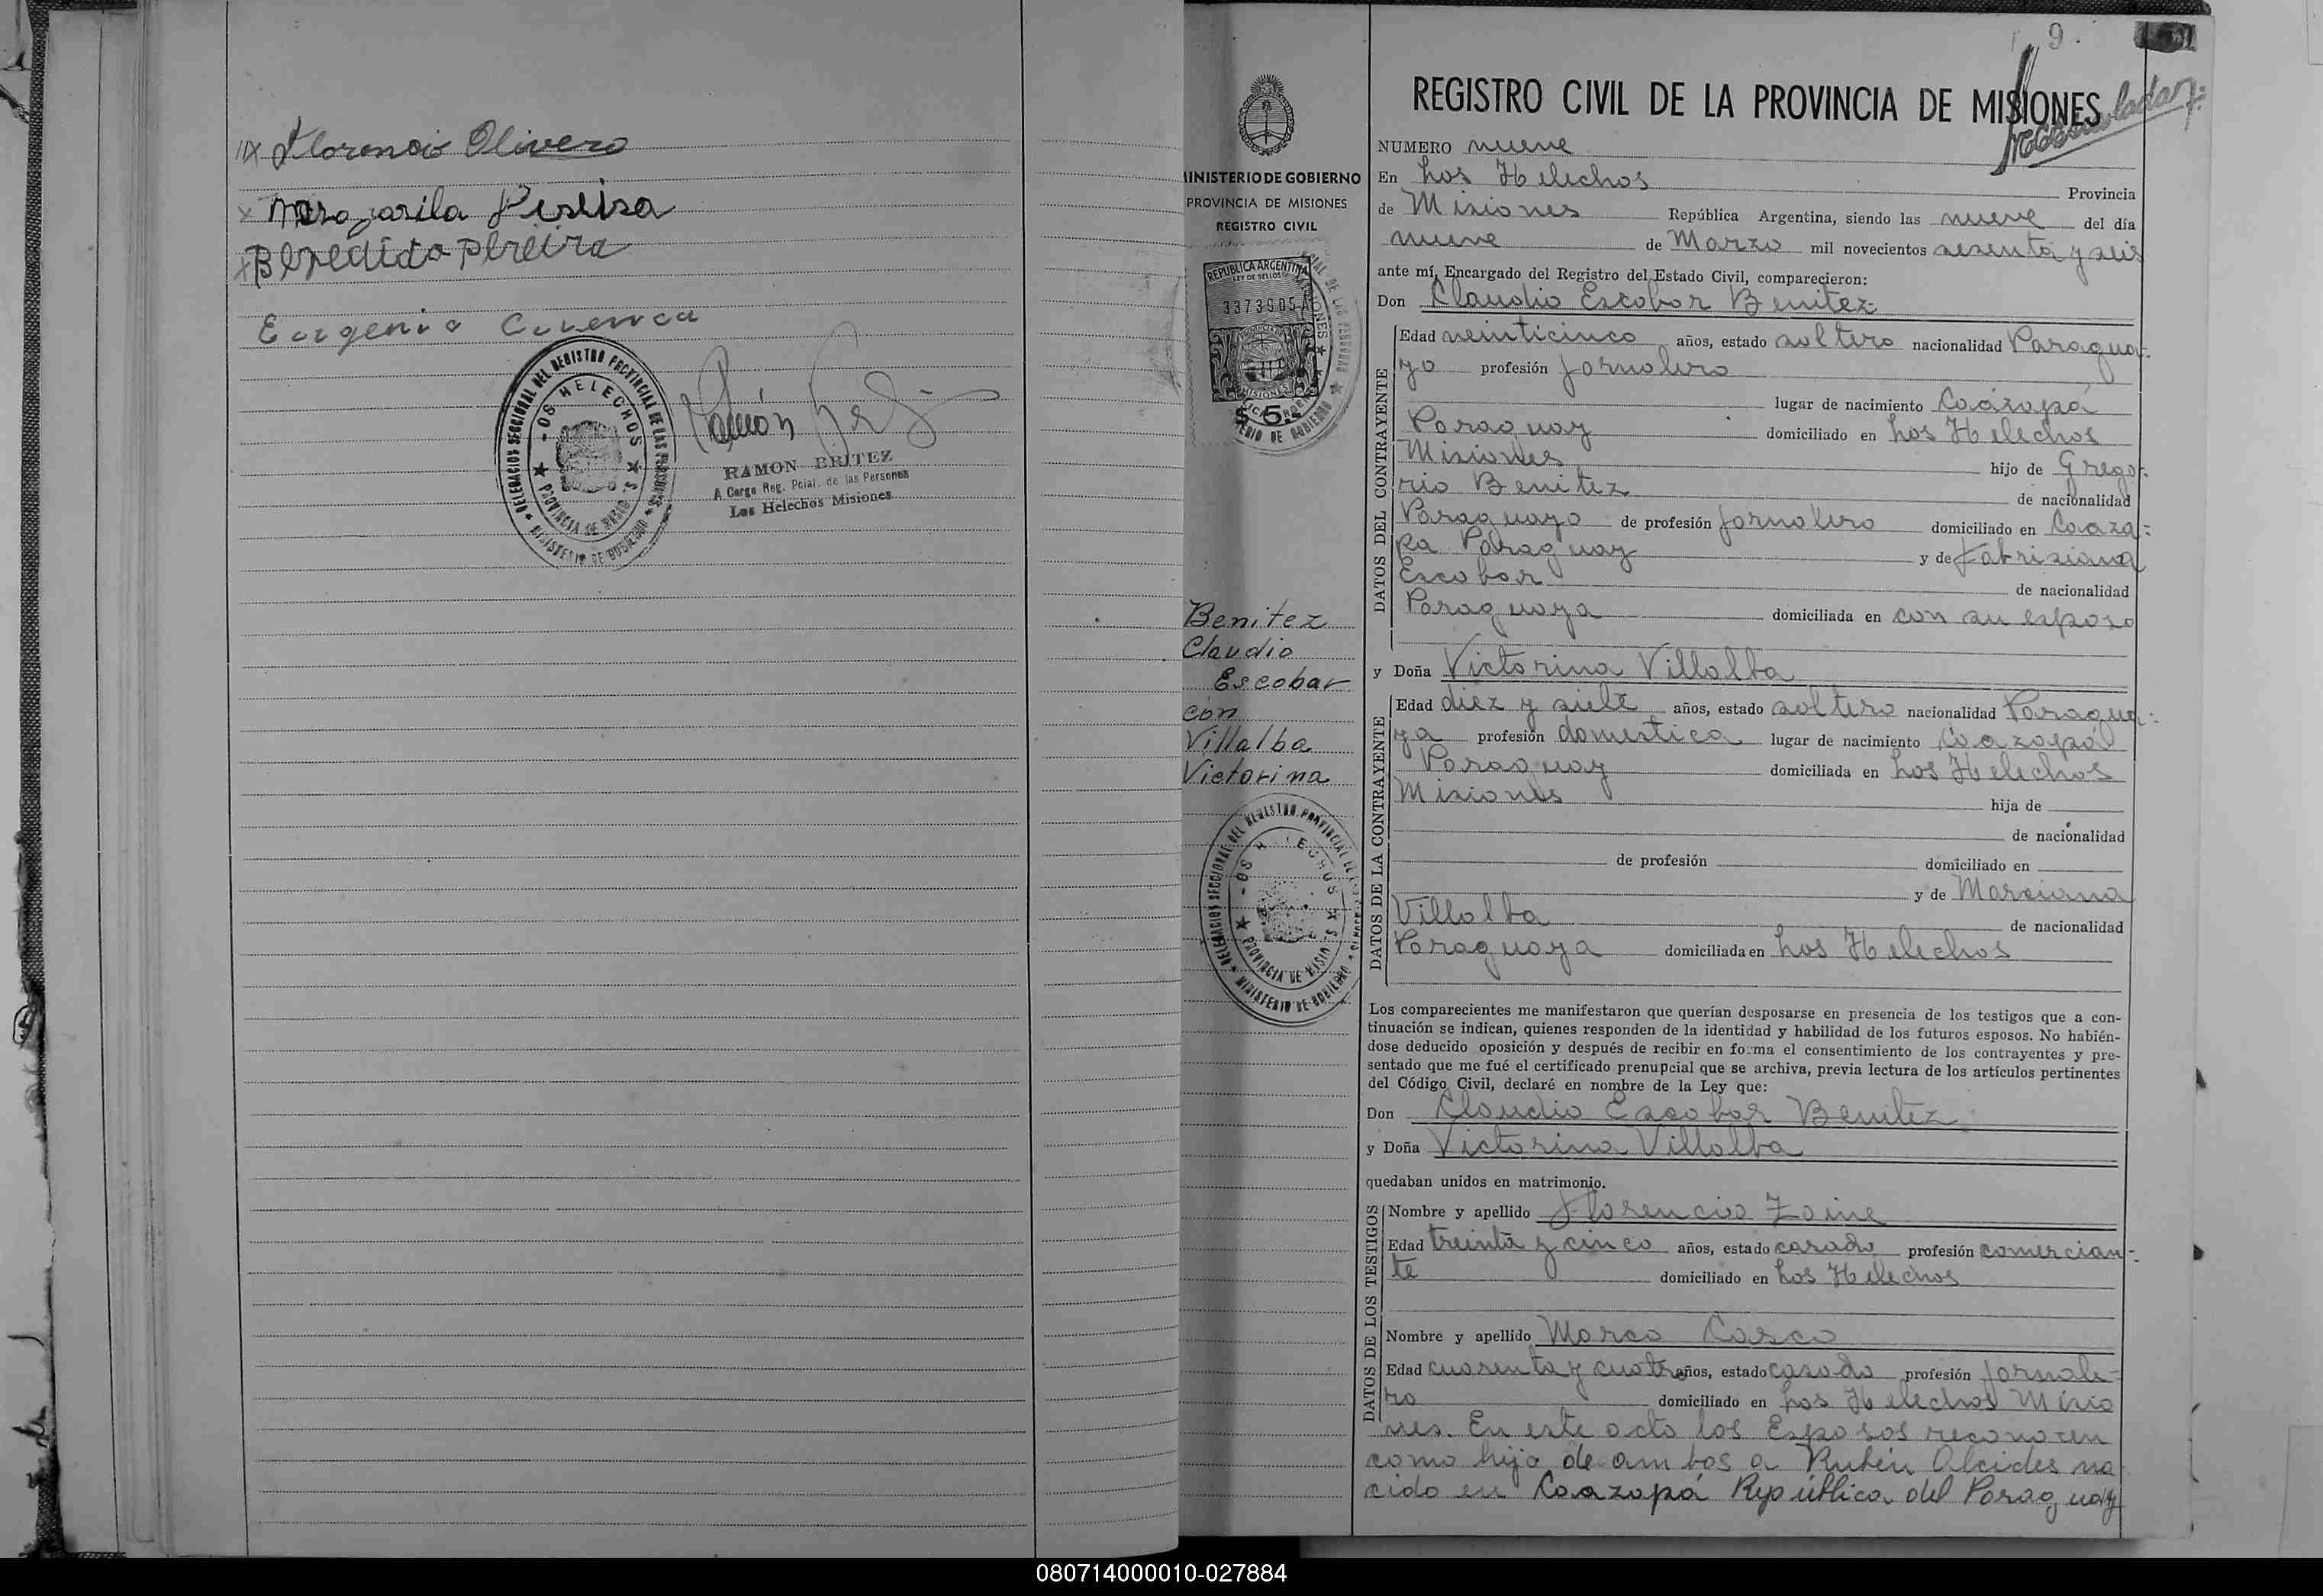 Florencio Olivero
Margarita Pereira
Benedicto Pereira
Eugenio Cuenca
DELEGACION SECCIONAL DEL REGISTRO PROVINCIAL DE LAS PERSONAS
LOS HELECHOS
PROVINCIA DE MISIONES
MINISTERIO DE GOBIERNO
RAMON BRITEZ
A Cargo Reg. Pcial. de las Personas
Los Helechos Misiones
9.
MINISTERIO DE GOBIERNO
PROVINCIA DE MISIONES
REGISTRO CIVIL
REPUBLICA ARGENTINA
LEY DE SELLOS
3373905A
MISIONES
$ 5
Benitez
Claudio
Escobar
con
Villalba
Victorina
DELEGACION SECCIONAL DEL REGISTRO PROVINCIAL DE
LOS HELECHOS
PROVINCIA DE MISIONES
MINISTERIO DE GOBIERNO
REGISTRO CIVIL DE LA PROVINCIA DE MISIONES
NUMERO nueve
En Los Helechos Provincia
de Misiones República Argentina, siendo las nueve del día
nueve de Marzo mil novecientos sesenta y seis
ante mí, Encargado del Registro del Estado Civil, comparecieron:
Don Claudio Escobar Benitez
DATOS DEL CONTRAYENTE
Edad veinticinco años, estado soltero nacionalidad Paragua-
yo profesión Jornalero
lugar de nacimiento Caázapá
Paraguay domiciliado en Los Helechos
Misiones hijo de Grego-
rio Benitez de nacionalidad
Paraguayo de profesión Jornalero domiciliado en Caaza-
pa Paraguay y de Fabriziana
Escobar de nacionalidad
Paraguaya domiciliada en con su esposo
y Doña Victorina Villalba
DATOS DE LA CONTRAYENTE
Edad diez y siete años, estado soltera nacionalidad Paragua-
ya profesión domestica lugar de nacimiento Caazapá
Paraguay domiciliada en Los Helechos
Misiones hija de
de nacionalidad
de profesión domiciliado en
y de Marciana
Villalba de nacionalidad
Paraguaya domiciliada en Los Helechos
Los comparecientes me manifestaron que querían desposarse en presencia de los testigos que a con-
tinuación se indican, quienes responden de la identidad y habilidad de los futuros esposos. No habién-
dose deducido oposición y después de recibir en forma el consentimiento de los contrayentes y pre-
sentado que me fué el certificado prenupcial que se archiva, previa lectura de los artículos pertinentes
del Código Civil, declaré en nombre de la Ley que:
Don Claudio Escobar Benitez
y Doña Victorina Villalba
quedaban unidos en matrimonio.
DATOS DE LOS TESTIGOS
Nombre y apellido Florencio Zaine
Edad treinta y cinco años, estado casado profesión comercian-
te domiciliado en Los Helechos
Nombre y apellido Marco Casco
Edad cuarenta y cuatro años, estado casado profesión Jornale-
ro domiciliado en Los Helechos Misio
nes. En este acto los Esposos reconocen
como hijo de ambos a Rubén Alcides na
cido en Caazapá República del Paraguay
080714000010-027884